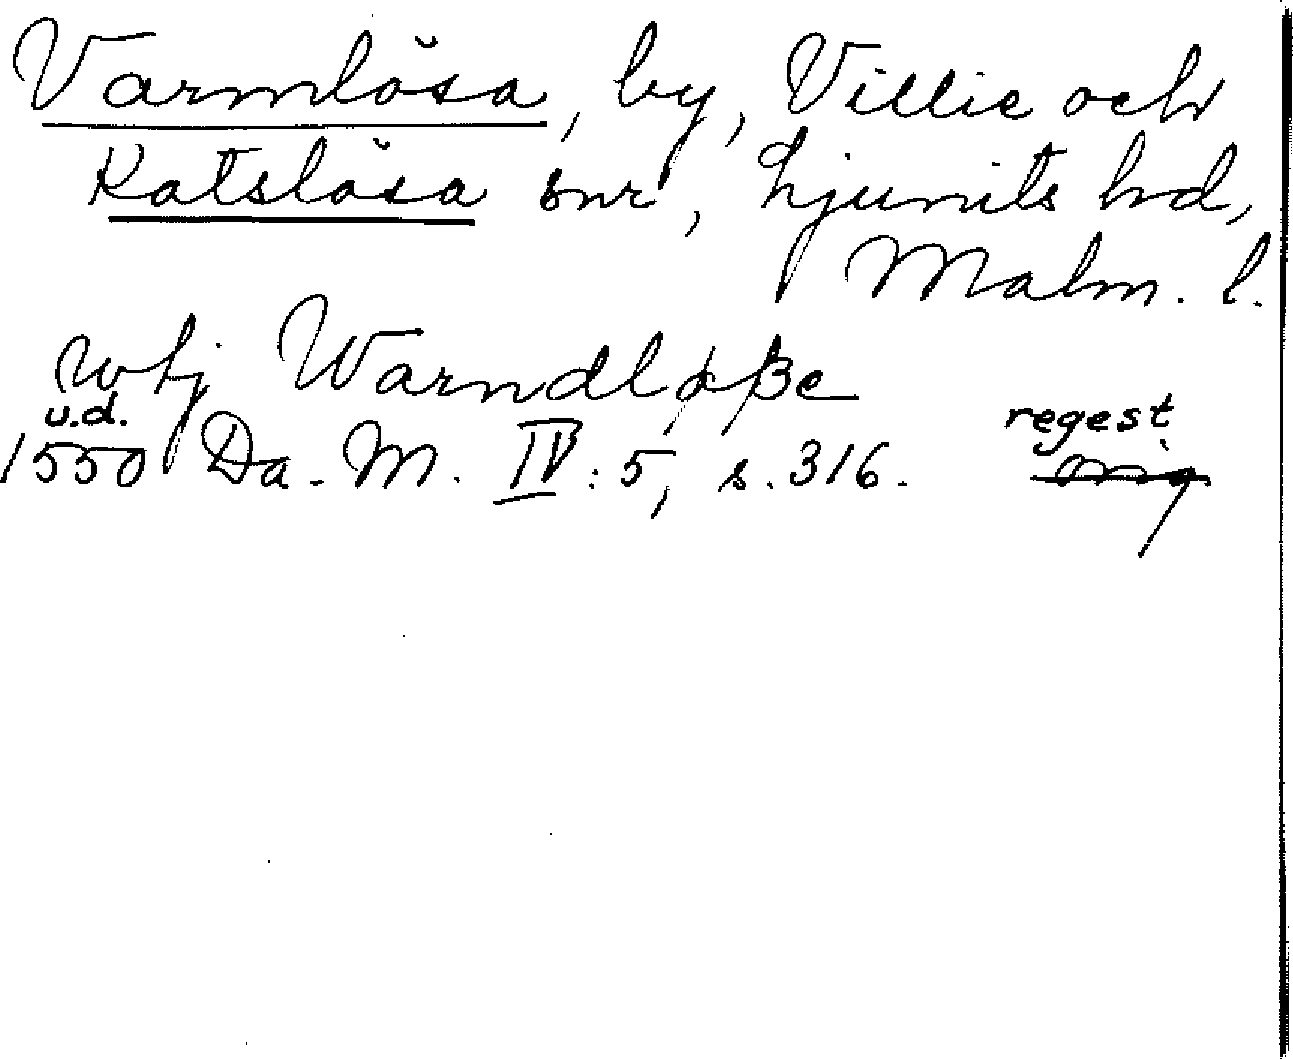 Varmlösa, by, Villie och
Katslösa snr, Ljunits hd,
Malm. l.
vthj Warndløße
u.d.
1550 Da. M. IV: 5, s. 316. regest